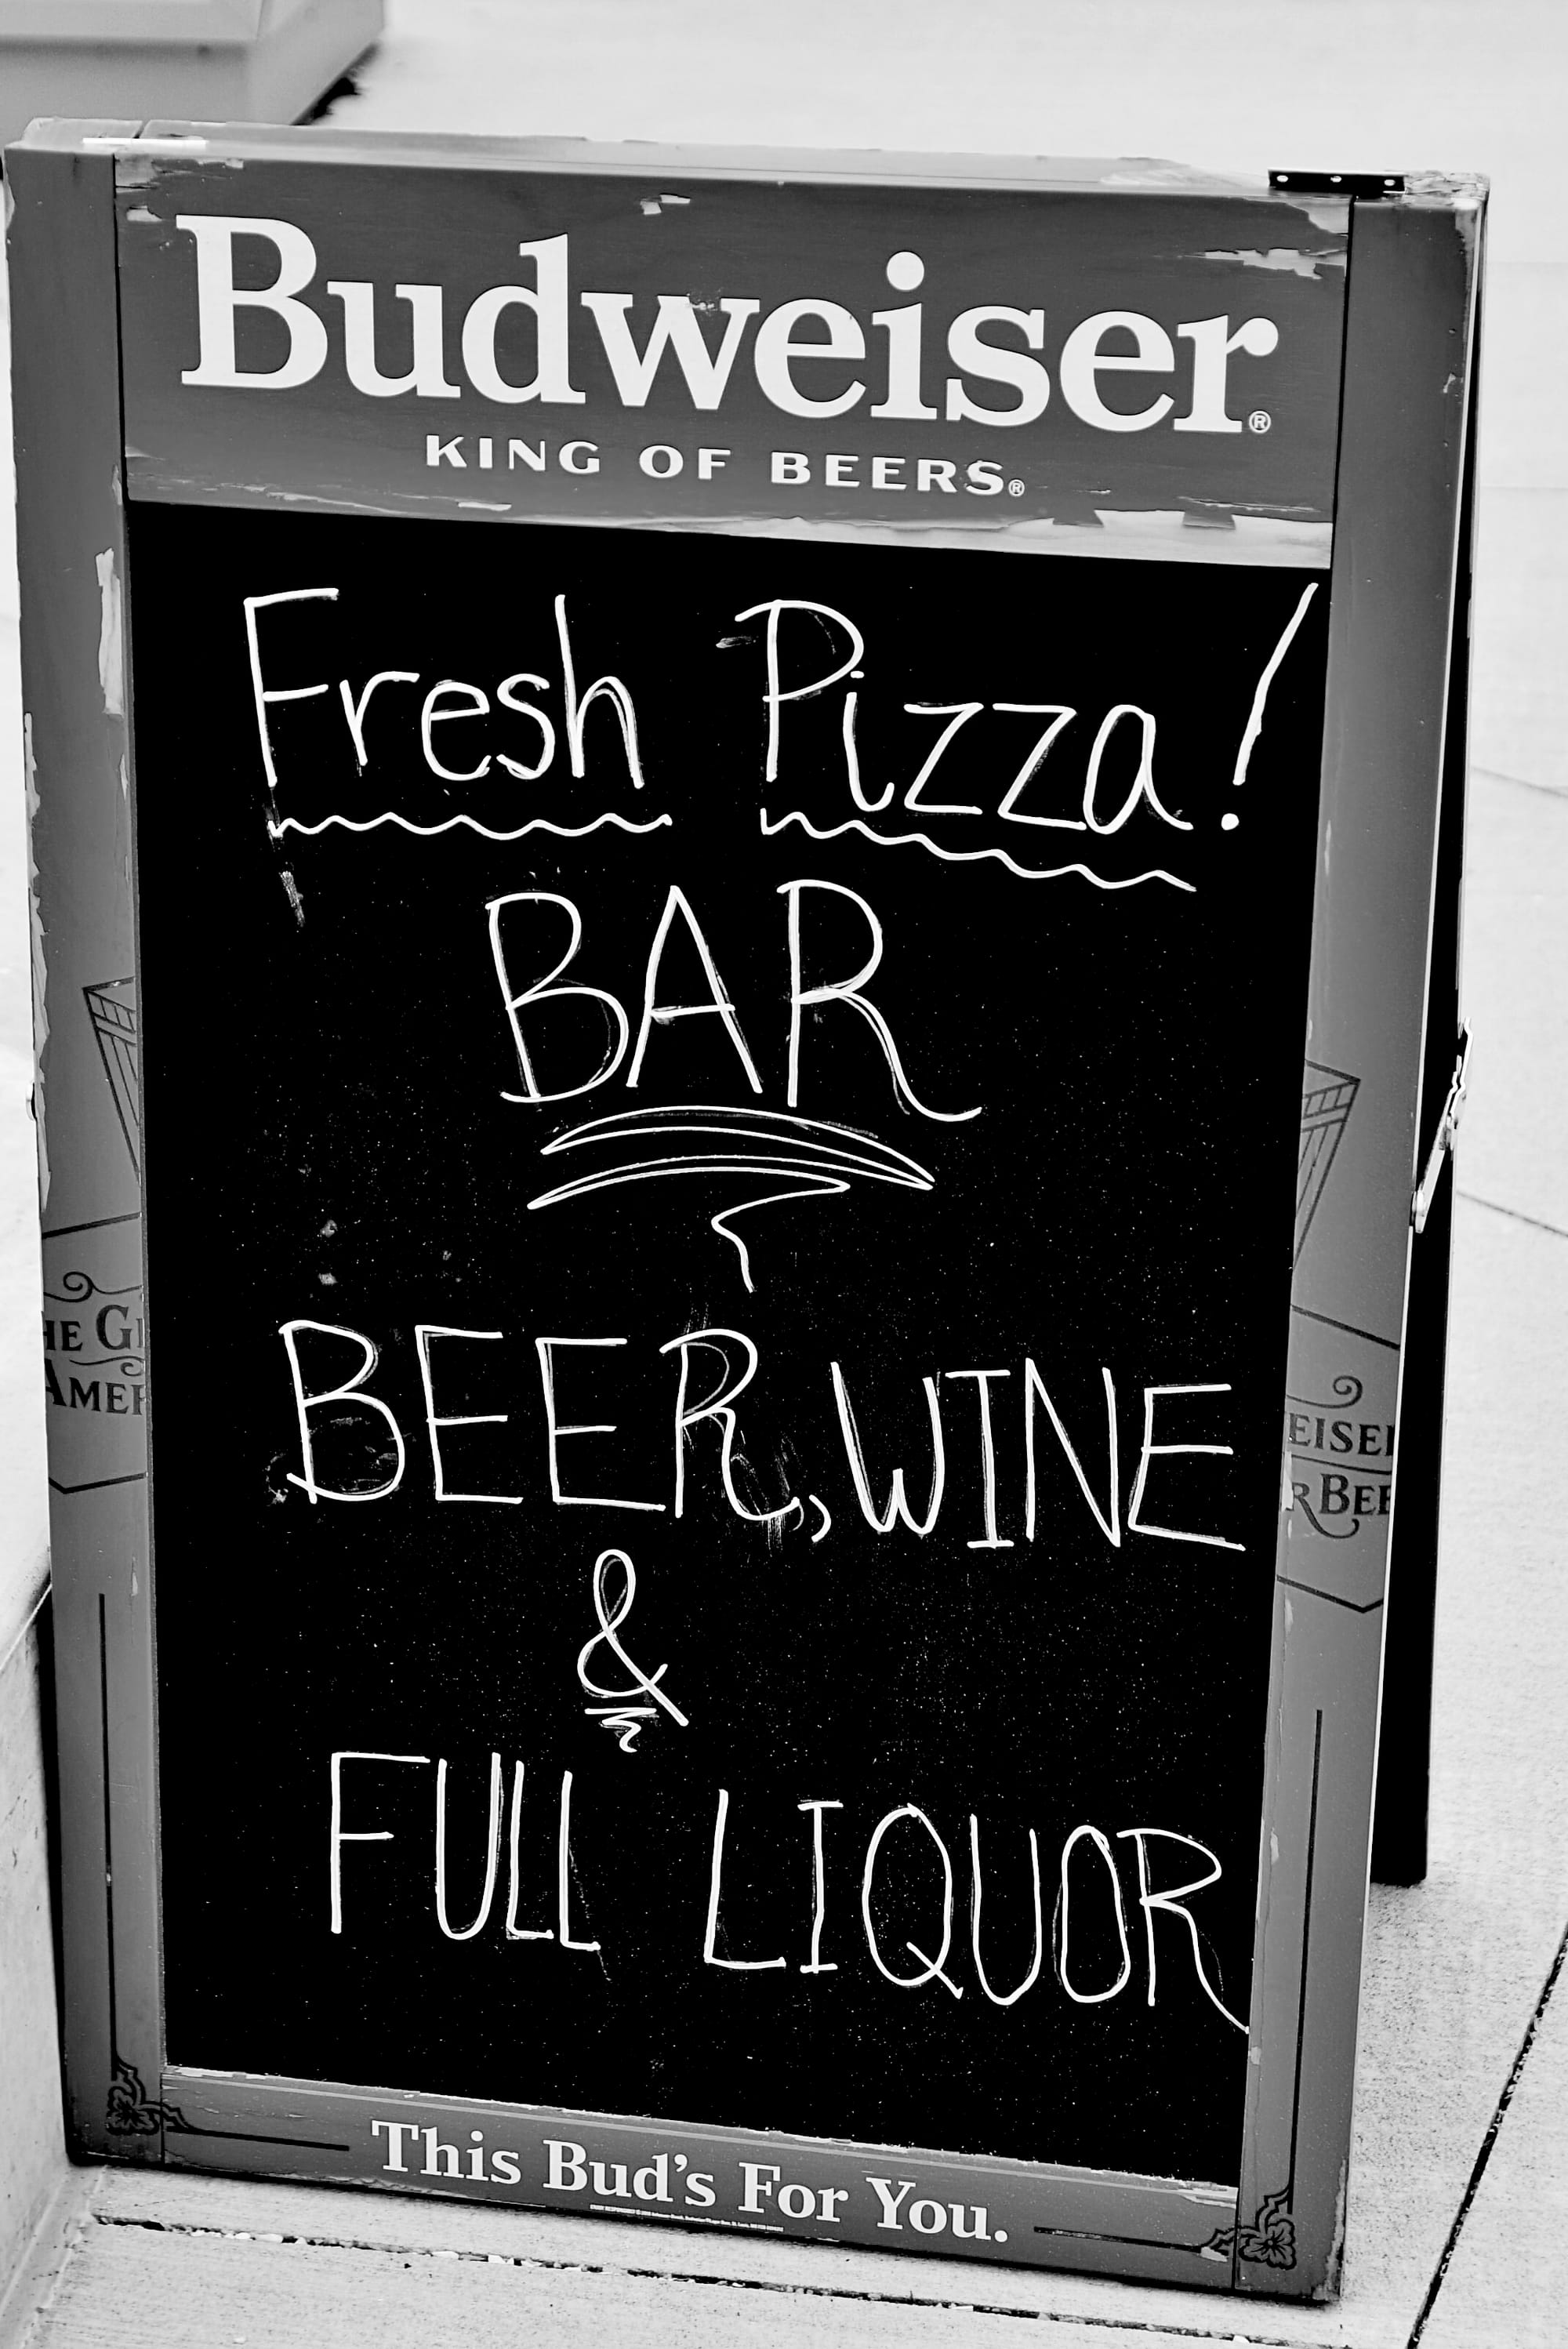 Budweiser®
KING OF BEERS®
Fresh Pizza!
BAR
BEER, WINE
&
FULL LIQUOR
HE G
AMER
EISE
R BEE
This Bud's For You.